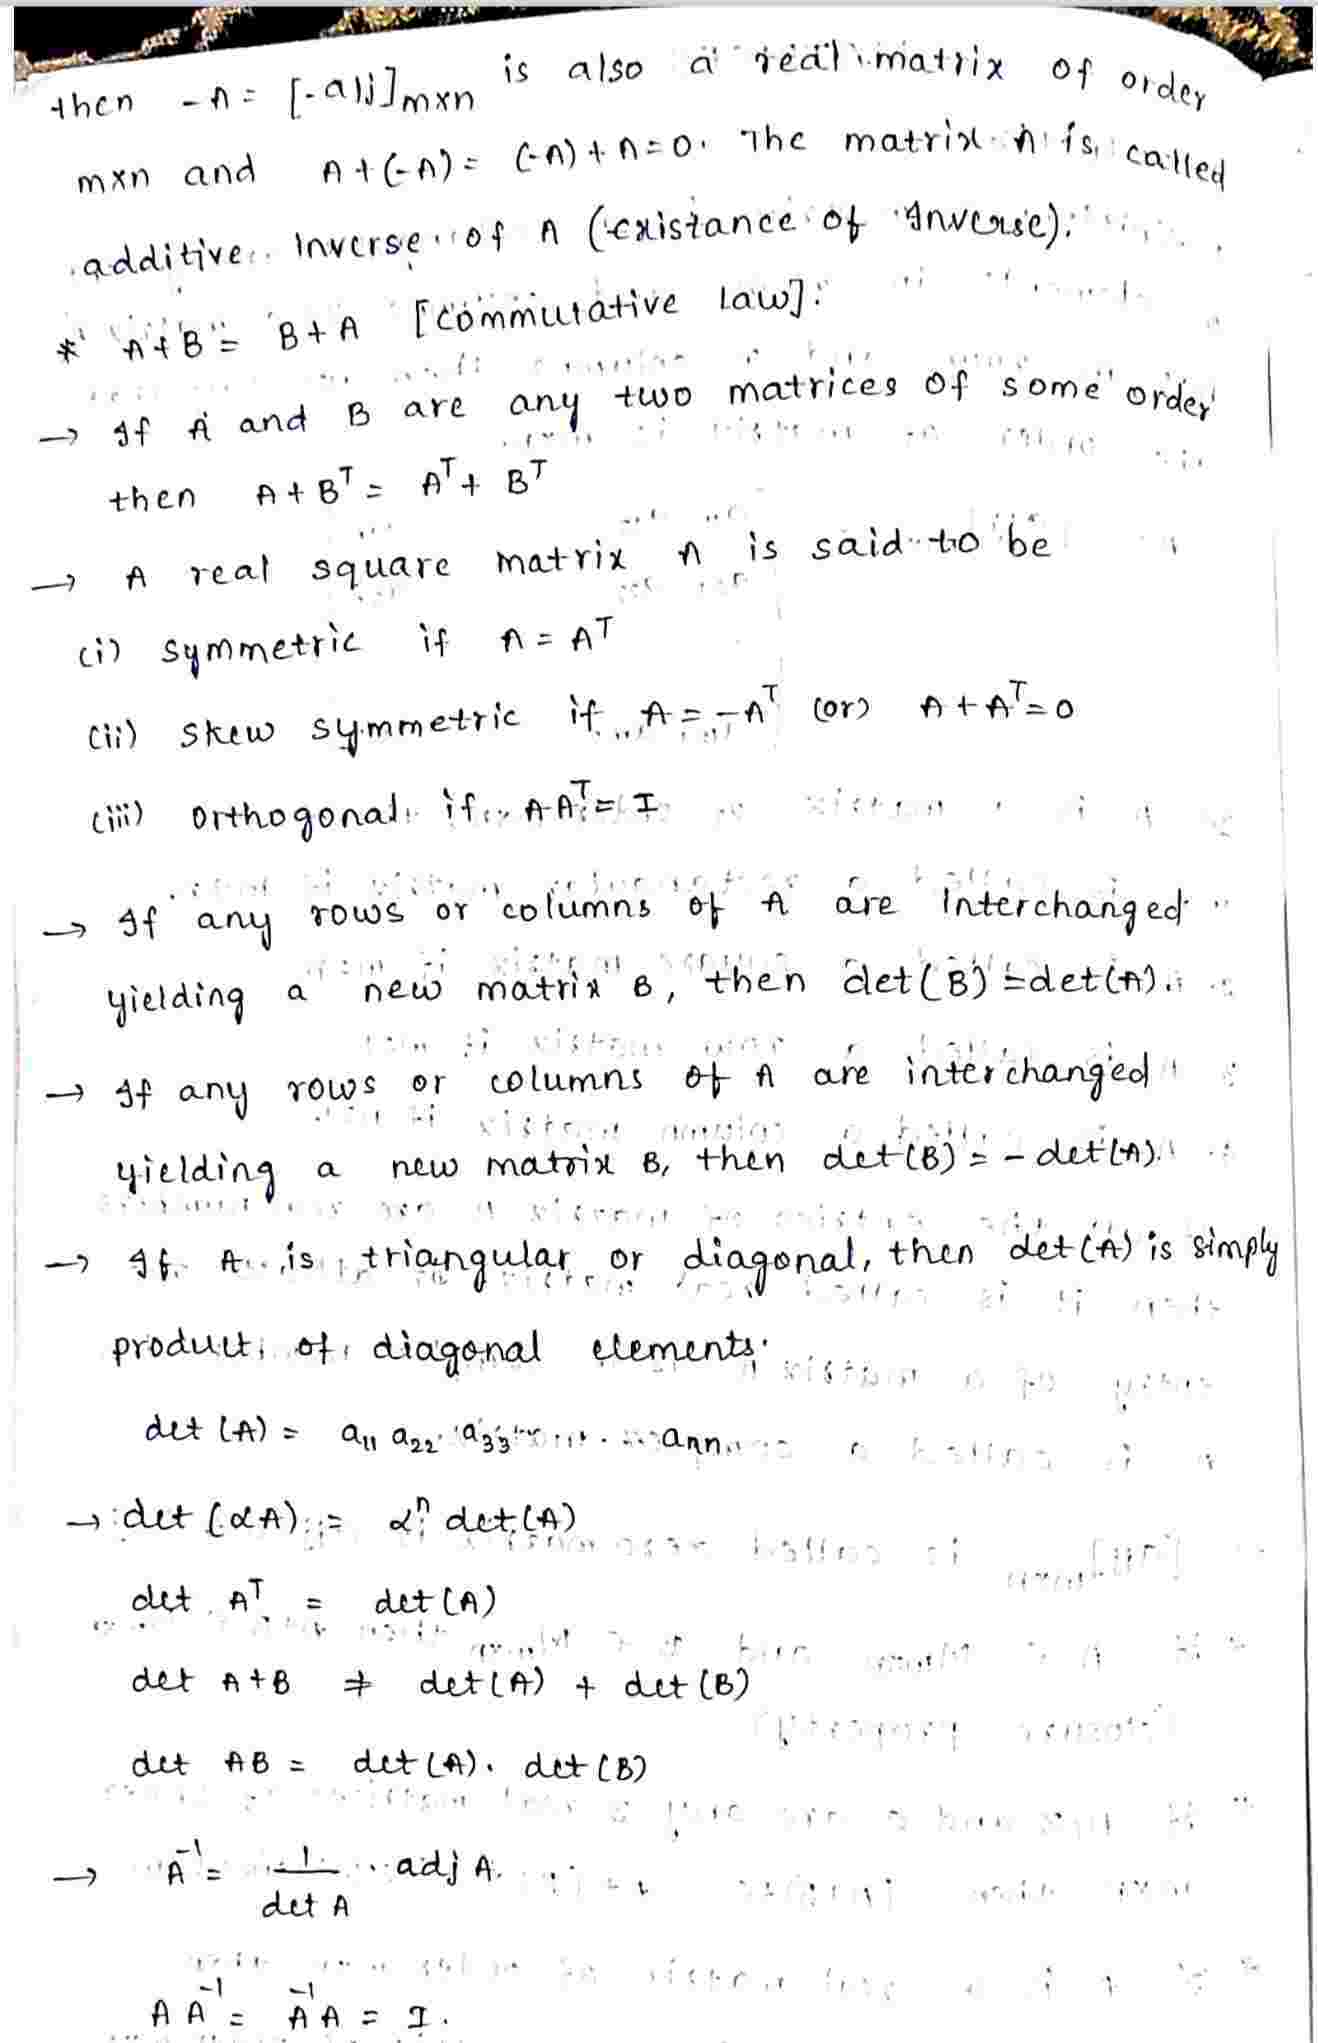 then -A = [-aij]mxn is also a real matrix of order
mxn and A+(-A) = (-A)+A=0. The matrix A is called
additive Inverse of A (existance of Inverse).
* A+B = B+A [commutative law].
→ If A and B are any two matrices of some order
then A+Bᵀ = Aᵀ+ Bᵀ
→ A real square matrix A is said to be
(i) symmetric if A = Aᵀ
(ii) skew symmetric if A = -Aᵀ (or) A+Aᵀ=0
(iii) orthogonal if AAᵀ= I
→ If any rows or columns of A are Interchanged
yielding a new matrix B, then det(B) = det(A).
→ If any rows or columns of A are interchanged
yielding a new matrix B, then det(B) = - det(A).
→ If A is triangular or diagonal, then det(A) is simply
product of diagonal elements.
det (A) = a₁₁ a₂₂ a₃₃ ....... ann
→ det (αA) = αⁿ det(A)
det Aᵀ = det(A)
det A+B ≠ det(A) + det(B)
det AB = det(A). det(B)
→ A⁻¹ = 1/det A . adj A.
A A⁻¹ = A⁻¹ A = I.